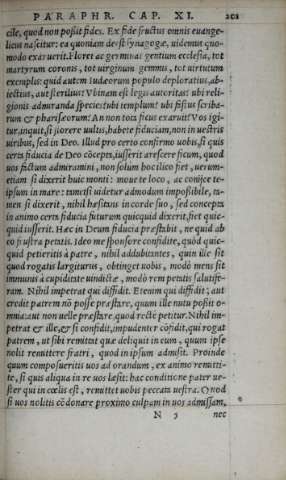 PARAPHR. CAP. XI. 201
cile, quod non possit fides. Ex fide fructus omnis euange-
licus nascitur: ea quoniam destit synagogæ, uidemus quo-
modo exaruerit. Floret ac germinat gentium ecclesia, tot
martyrum coronis, tot uirginum gemmis, tot uirtutum
exemplis: quid autem Iudæorum populo deploratius, ab-
iectius, aut sterilius? Vbi nam est legis autoritas? ubi reli-
gionis admiranda species? ubi templum? ubi fastus scriba-
rum & pharisæorum? An non tota ficus exaruit? Vos igi-
tur, inquit, si florere uultis, habete fiduciam, non in uestris
uiribus, sed in Deo. Illud pro certo confirmo uobis, si quis
certa fiducia de Deo cōcepta, iusserit arescere ficum, quod
uos factum admiramini, non solum hoc ilico fiet, uerum-
etiam si dixerit huic monti: moue te loco, ac conijce te-
ipsum in mare: tametsi uidetur admodum impossibile, ta-
men si dixerit, nihil hæsitans in corde suo, sed concepta
in animo certa fiducia futurum quicquid dixerit, fiet quic-
quid iusserit. Hæc in Deum fiducia præstabit, ne quid ab
eo frustra petatis. Ideo me sponsore confidite, quòd quic-
quid petieritis à patre, nihil addubitantes, quin ille sit
quod rogatis largiturus, obtinget uobis, modò mens sit
immunis à cupiditate uindictæ, modò rem petatis salutife-
ram. Nihil impetrat qui diffidit. Etenim qui diffidit: aut
credit patrem nō posse præstare, quum ille nutu possit o-
mnia: aut non uelle præstare quod rectè petitur. Nihil im-
petrat & ille, & si confidit, impudenter cōfidit, qui rogat
patrem, ut sibi remittat quæ deliquit in eum, quum ipse
nolit remittere fratri, quod in ipsum admisit. Proinde
quum composueritis uos ad orandum, ex animo remitti-
te, si quis aliqua in re uos læsit: hac conditione pater ue-
ster qui in cœlis est, remittet uobis peccata uestra. Quod
si uos nolitis cōdonare proximo culpam in uos admissam,
N 5 nec